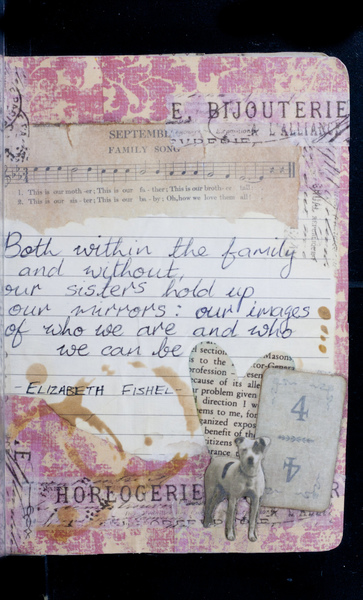 E BIJOUTERIE
A L'ALLIANC
SEPTEMB
FAMILY SONG
1. This is our moth-er; This is our fa-ther; This is our broth-er tall
2. This is our sis-ter; This is our ba-by; Oh, how we love them all!
Both within the family
and without,
our sisters hold up
our mirrors: our images
of who we are and who
we can be
- ELIZABETH FISHEL -
l section.
Mason
to the
profession
cause of its alle
ur problem given
direction I w
ems to me, for
rganized expos
benefit of th
citizens
rance
4
4
E
HORLOGERIE